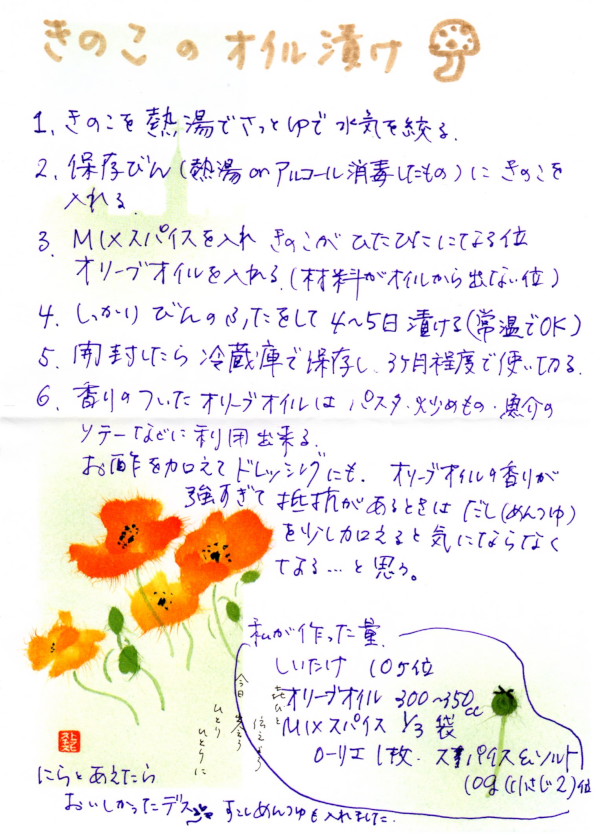 きのこのオイル漬け
1. きのこを熱湯でさっとゆで水気を絞る.
2. 保存びん(熱湯orアルコール消毒したもの)にきのこを
入れる.
3. MIXスパイスを入れ きのこが ひたひたになる位
オリーブオイルを入れる.(材料がオイルから出ない位)
4. しっかり びんのふたをして 4〜5日 漬ける(常温でOK)
5. 開封したら 冷蔵庫で保存し、3ケ月程度で使い切る.
6. 香りのついた オリーブオイルは パスタ・炒めもの・魚介の
ソテーなどに利用出来る.
お酢を加えて ドレッシングにも. オリーブオイルの香りが
強すぎて 抵抗が あるときは だし(めんつゆ)
を少し加えると 気にならなく
なる…と思う。
私が作った量.
しいたけ 10ケ位
オリーブオイル 300〜350cc
MIXスパイス 1/3 袋
ローリエ 1枚. スパイス&ソルト
10g(小さじ2)位
喜びを
伝えよう
今日
出会う
ひとり
ひとりに
にらとあえたら
おいしかったデス すこしめんつゆも入れました.